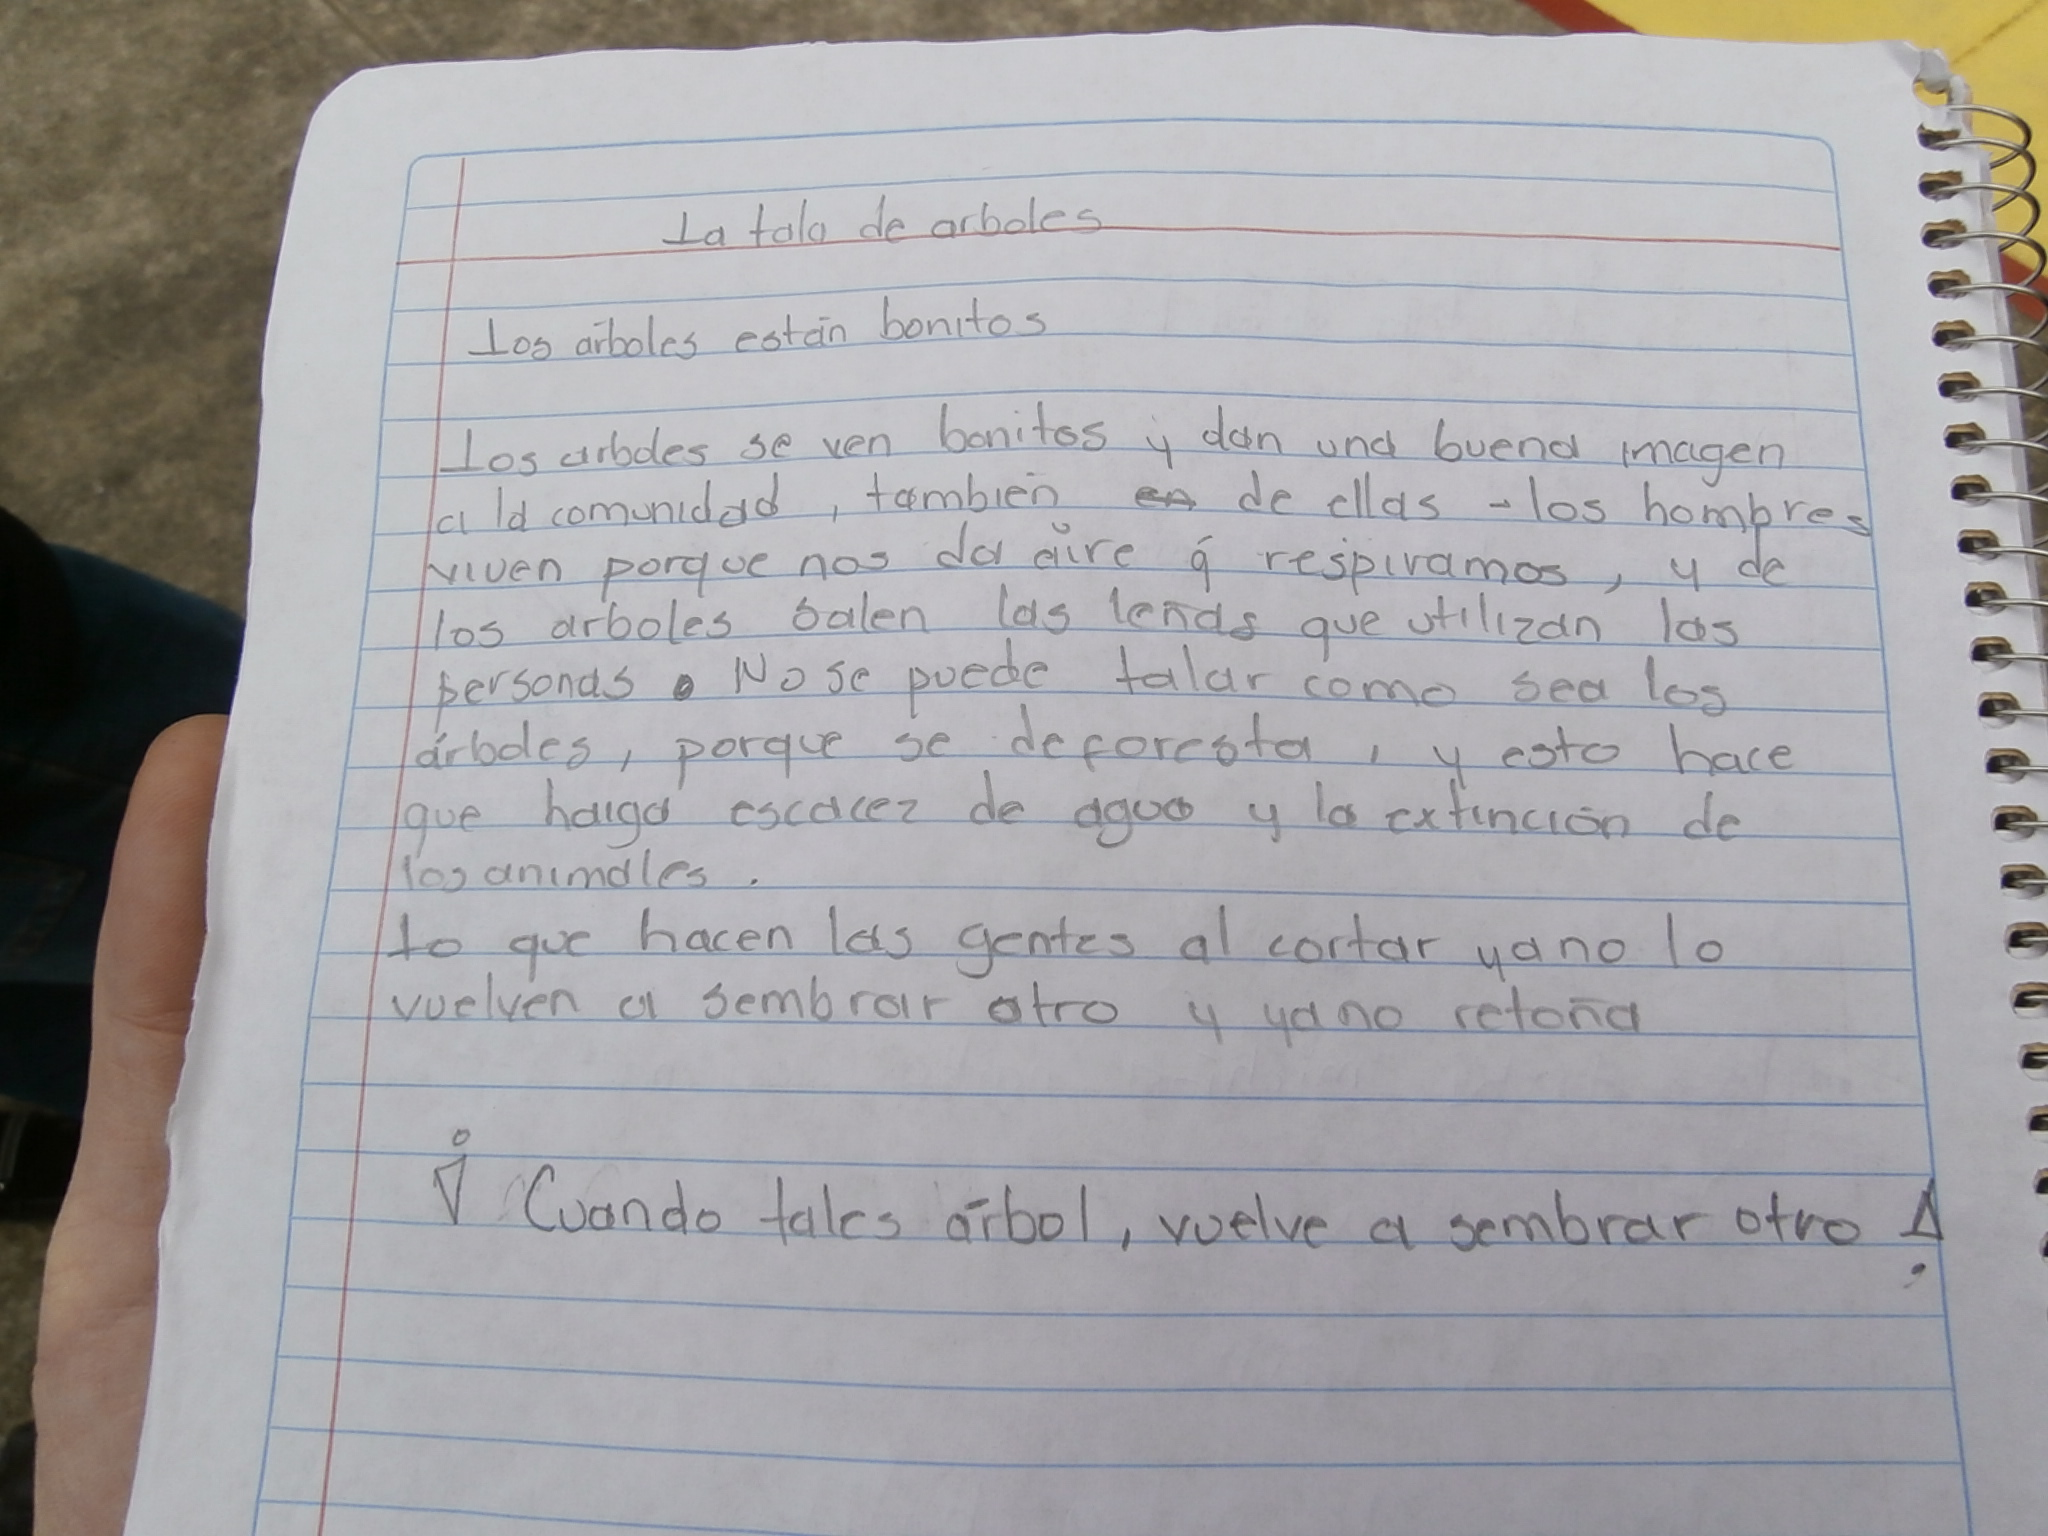 La tala de arboles
Los árboles están bonitos
Los arboles se ven bonitos y dan una buena imagen
a la comunidad, también en de ellas - los hombres
viven porque nos da aire q respiramos, y de
los arboles salen las leñas que utilizan las
personas. No se puede talar como sea los
árboles, porque se deforesta, y esto hace
que haiga escacez de agua y la extinción de
los animales.
Lo que hacen las gentes al cortar ya no lo
vuelven a sembrar otro y ya no retoña
¡Cuando tales árbol, vuelve a sembrar otro!